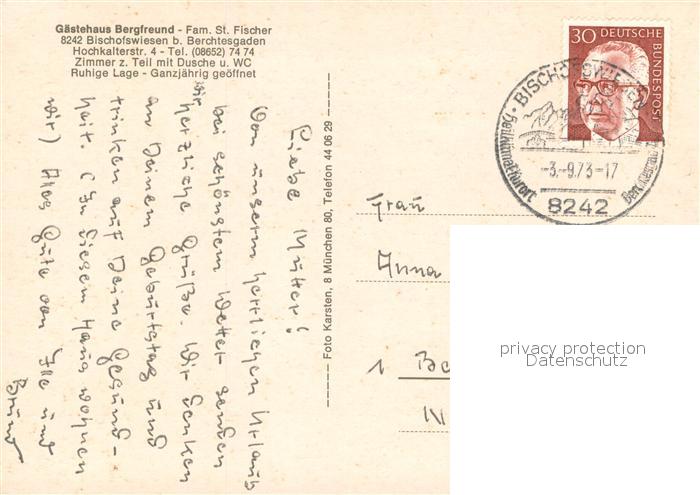 Gästehaus Bergfreund - Fam. St. Fischer
8242 Bischofswiesen b. Berchtesgaden
Hochkalterstr. 4 - Tel. (08652) 74 74
Zimmer z. Teil mit Dusche u. WC
Ruhige Lage - Ganzjährig geöffnet
Liebe Mutter!
Von unserm herrlichen Urlaub
bei schönstem Wetter senden
wir
herzliche Grüße. Wir denken
an Deinen Geburtstag und
trinken auf Deine Gesund-
heit. (In diesem Haus wohnen
wir) Alles Gute von Ille und
Bruno
Foto Karsten, 8 München 80, Telefon 44 06 29
30 DEUTSCHE
BUNDESPOST
BISCHOFSWIESEN
Heilklimat. Kurort
-3.-9.73-17
8242
Frau
Anna
1 Be
privacy protection
Datenschutz